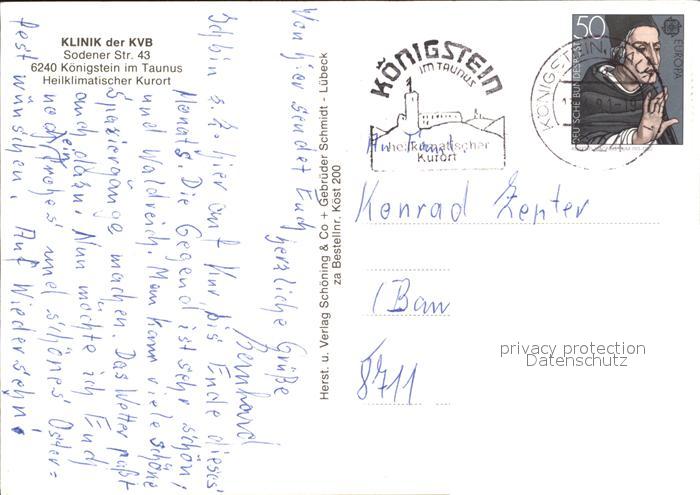 KLINIK der KVB
Sodener Str. 43
6240 Königstein im Taunus
Heilklimatischer Kurort
Von hier sendet Euch
herzliche Grüße
Bernhard
Ich bin z. Z. hier auf Kur bis Ende dieses
Monats. Die Gegend ist sehr schön,
und Waldreich. Man kann viele schöne
Spaziergänge machen. Das Wetter paßt
auch dazu. Nun möchte ich Euch
noch ein frohes und schönes Oster=
fest wünschen. Auf Wiedersehn!
Herst. u. Verlag Schöning & Co + Gebrüder Schmidt - Lübeck
za Bestellnr. Köst 200
KÖNIGSTEIN
IM TAUNUS
heilklimatischer
Kurort
KÖNIGSTEIN
50
DEUTSCHE BUNDESPOST
EUROPA
Konrad Zepter
8711
privacy protection
Datenschutz